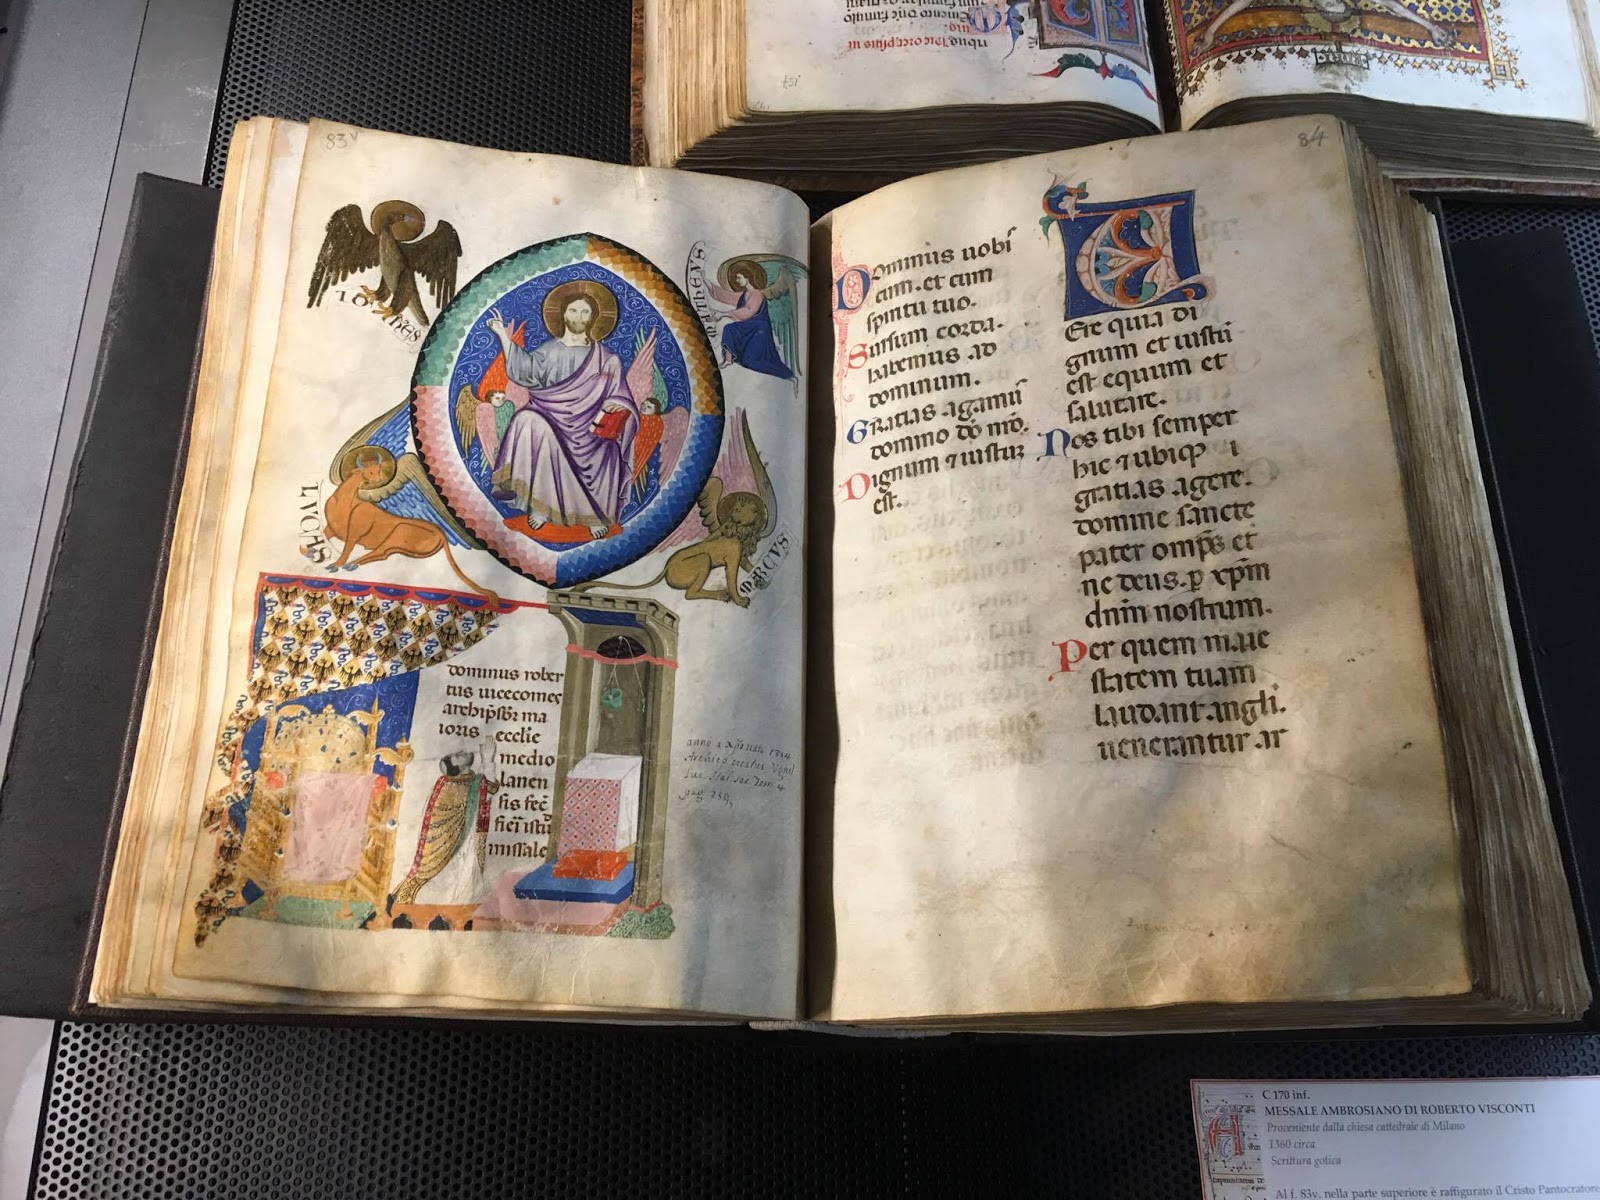 83v
IOHES
MATHEUS
LUCHAS
MARCUS
dominus rober
tus vicecomes
archiep̄s
ioris ecclīe
medio
lanen
sis fec̄
missale
84
Dominus vobis
cum. et cum
spiritu tuo.
Sursum corda.
habemus ad
dominum.
Gratias agamus
domino dō nr̄o.
Dignum ⁊ iustum
est.
Ere quia di
gnum et iustū
est equum et
salutare.
Nos tibi semper
hic ⁊ ubiqꝫ
gratias agere.
domine sancte
pater omp̄s et
ne deus. p̄ xp̄m
dn̄m nostrum.
Per quem maie
statem tuam
laudant. angli.
venerantur. ar
C 170 inf.
MESSALE AMBROSIANO DI ROBERTO VISCONTI
Proveniente dalla chiesa cattedrale di Milano
1360 circa
Scrittura gotica
Al f. 83v, nella parte superiore è raffigurato il Cristo Pantocratore